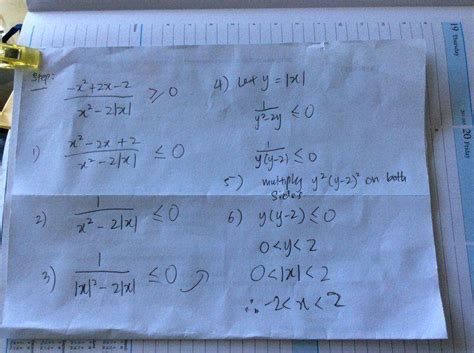 Step:
-x²+2x-2 / x²-2|x| ≥ 0
1) x²-2x+2 / x²-2|x| ≤ 0
2) 1 / x²-2|x| ≤ 0
3) 1 / |x|²-2|x| ≤ 0
4) Let y = |x|
1 / y²-2y ≤ 0
1 / y(y-2) ≤ 0
5) multiply y²(y-2)² on both
sides
6) y(y-2) ≤ 0
0<y<2
0<|x|<2
∴ -2<x<2
19 Thursday
20 Friday